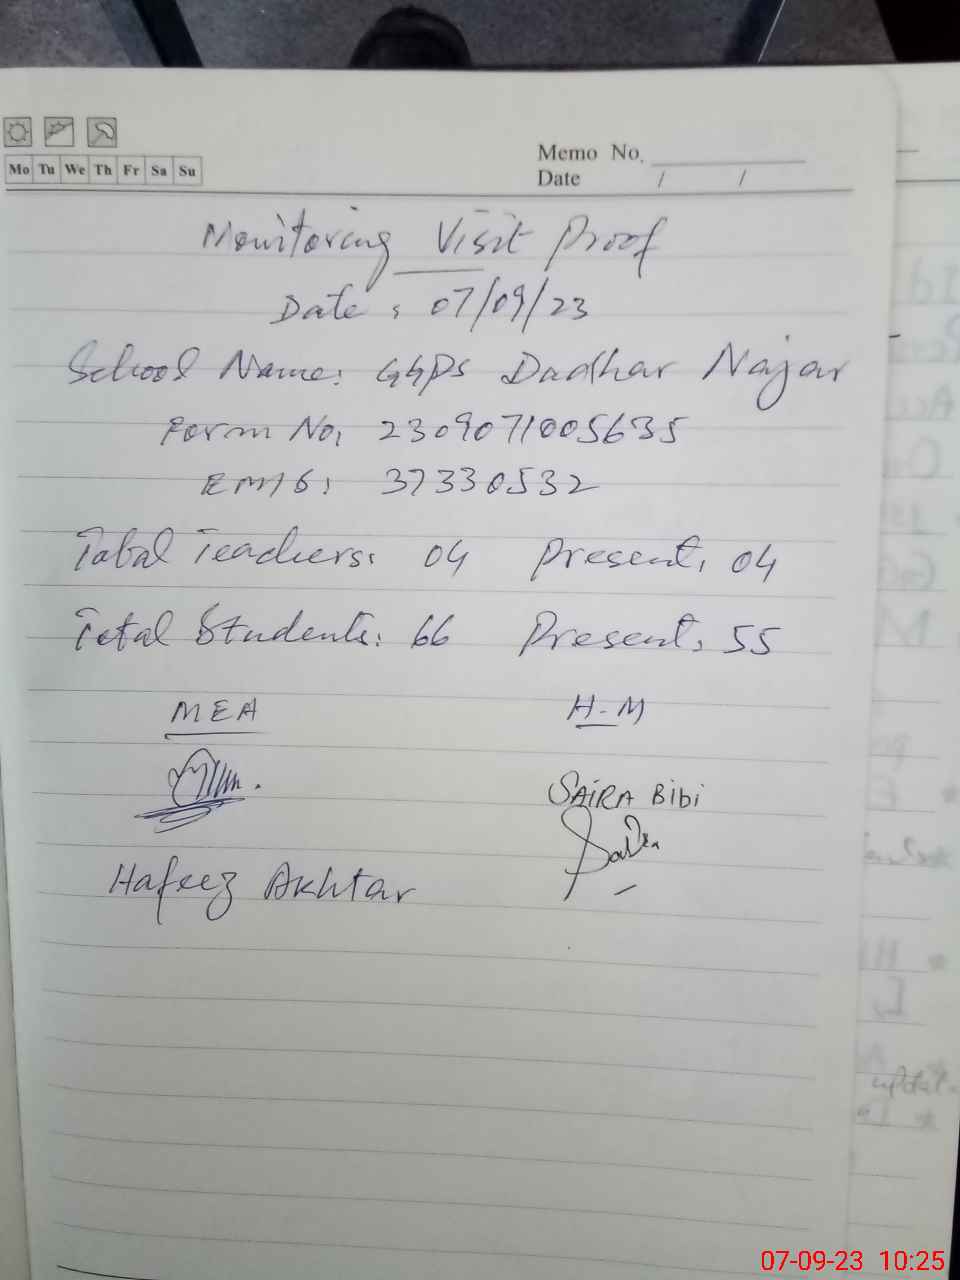 Mo Tu We Th Fr Sa Su
Memo No.
Date / /
Monitoring Visit Proof
Date: 07/09/23
School Name: GGPS Dadhar Najar
Form No: 2309071005635
EMIS: 37330532
Total Teachers: 04 Present: 04
Total Students: 66 Present: 55
MEA H-M
SAIRA BiBi
Hafeez Akhtar
07-09-23 10:25